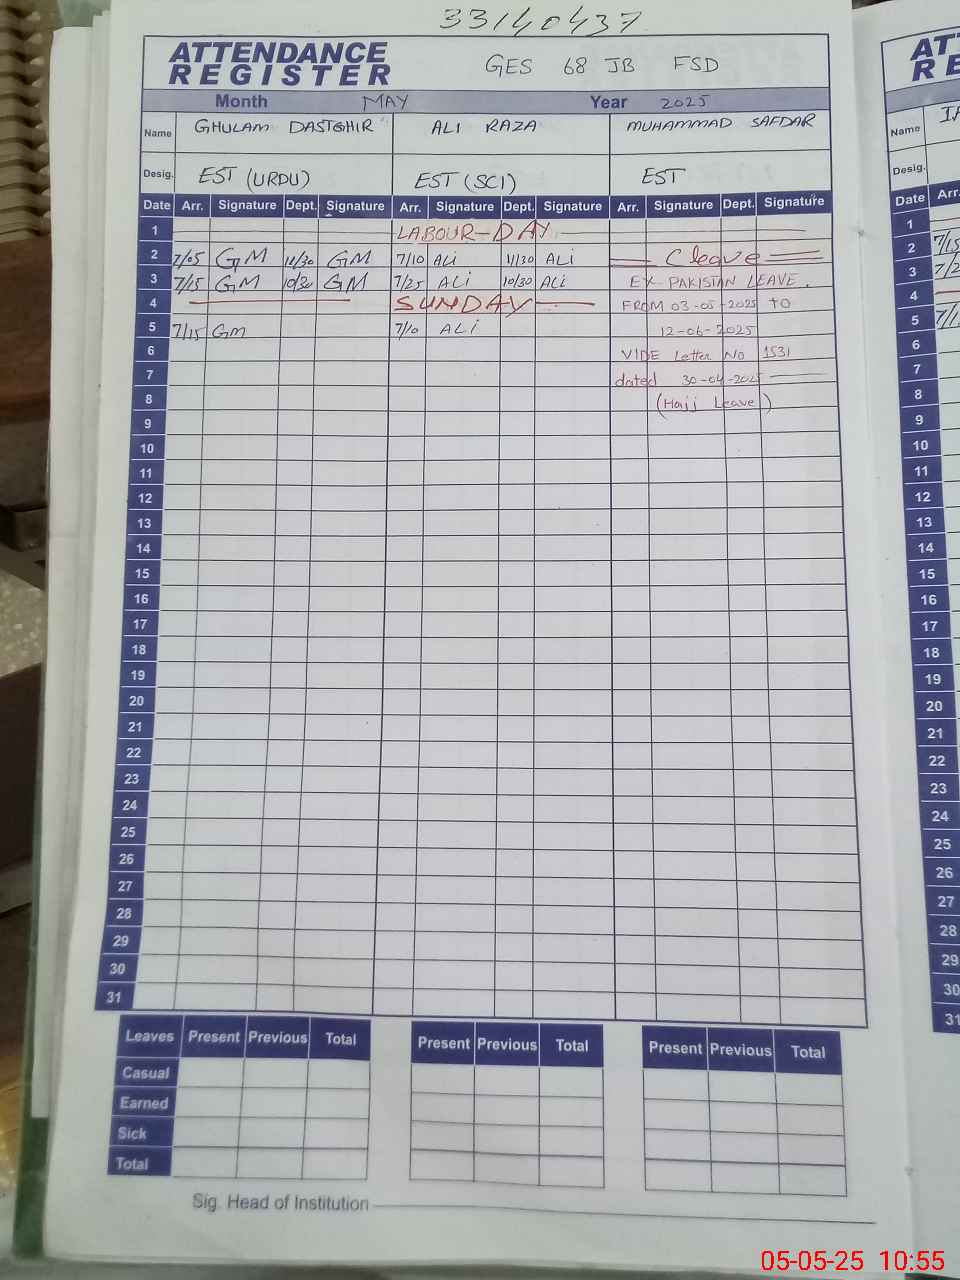 33140437
ATTENDANCE REGISTER
GES 68 JB FSD
Month MAY Year 2025
Name GHULAM DASTGHIR ALI RAZA MUHAMMAD SAFDAR
Desig. EST (URDU) EST (SCI) EST
Date Arr. Signature Dept. Signature Arr. Signature Dept. Signature Arr. Signature Dept. Signature
1 LABOUR-DAY
2 7/05 GM 11/30 GM 7/10 ALi 11/20 ALi Cleave
3 7/15 GM 10/30 GM 7/25 ALi 10/30 ALi EX-PAKISTAN LEAVE.
4 SUNDAY FROM 03-05-2025 TO
5 7/15 GM 7/10 ALi 12-06-2025
6 VIDE Letter No 1531
7 dated 30-04-2025
8 (Hajj Leave)
9
10
11
12
13
14
15
16
17
18
19
20
21
22
23
24
25
26
27
28
29
30
31
Leaves Present Previous Total Present Previous Total Present Previous Total
Casual
Earned
Sick
Total
Sig. Head of Institution
Name
Desig.
Date Arr.
1
2 7/15
3
4
5
6
7
8
9
10
11
12
13
14
15
16
17
18
19
20
21
22
23
24
25
26
27
28
29
30
31
05-05-25 10:55